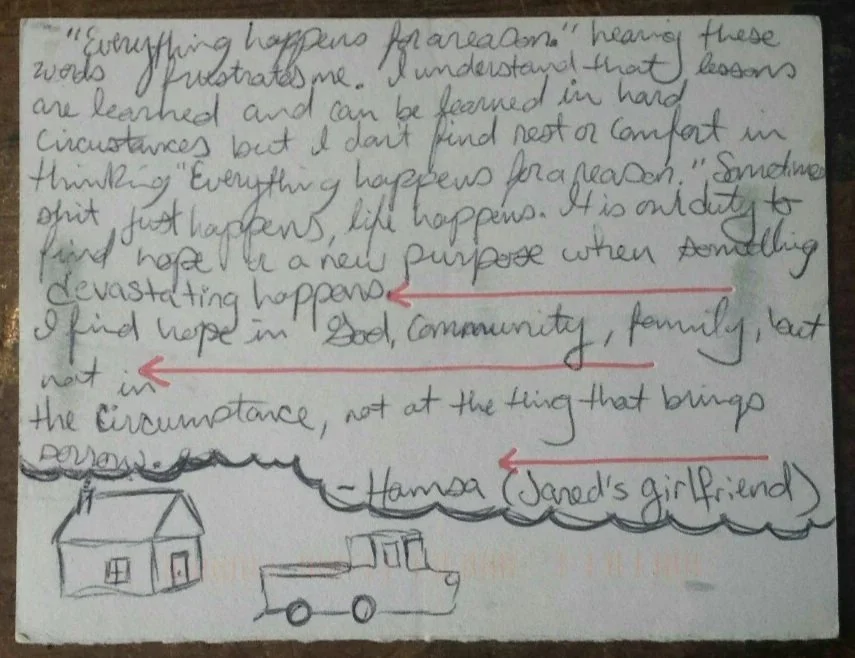 "Everything happens for a reason." hearing these
words frustrates me. I understand that lessons
are learned and can be learned in hard
circustances but I don't find rest or comfort in
thinking "Everything happens for a reason." Sometimes
shit just happens, life happens. It is our duty to
find hope or a new purpose when something
devastating happens.
I find hope in God, community, family, but
not in
the circumstance, not at the thing that brings
sorrow.
- Hamsa (Jared's girlfriend)